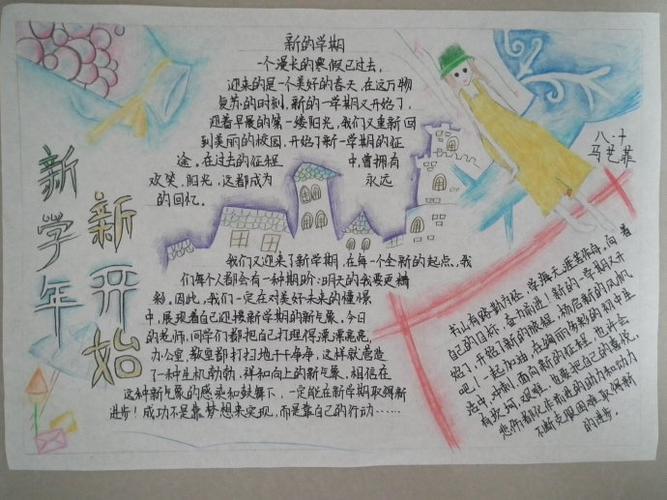 新的学期
一个漫长的寒假已过去，
迎来的是一个美好的春天，在这万物
复苏的时刻，新的一学期又开始了，
迎着早晨的第一缕阳光，我们又重新回
到美丽的校园，开始了新一学期的征
途。在过去的征程中，曾拥有
欢笑、阳光，这都成为永远
的回忆。
八、十
马艺菲
新学年
新开始
我们又迎来了新学期，在每一个全新的起点，我
们每个人都会有一种期盼：明天的我要更精
彩。因此，我们一定在对美好未来的憧憬
中，展现着自己迎接新学期的新气象，今日
的老师，同学们都把自己打理得漂漂亮亮，
办公室，教室都打扫地干干净净，这样就营造
了一种生机勃勃，祥和向上的新气象，相信在
这种新气象的感染和鼓舞下，一定能在新学期取得新
进步！成功不是靠梦想来实现，而是靠自己的行动……
书山有路勤为径，学海无涯苦作舟，向着
自己的目标，奋力前进！新的一学期又开
始了，开始了新的旅程，扬起新的风帆
吧！一起加油，在绚丽多彩的初中生
活中，冲刺，面向新的征程，也许会
有坎坷、艰难，也要把自己的喜悦，
悲伤都化走前进的助力和动力
不断克服困难取得新
的进步。